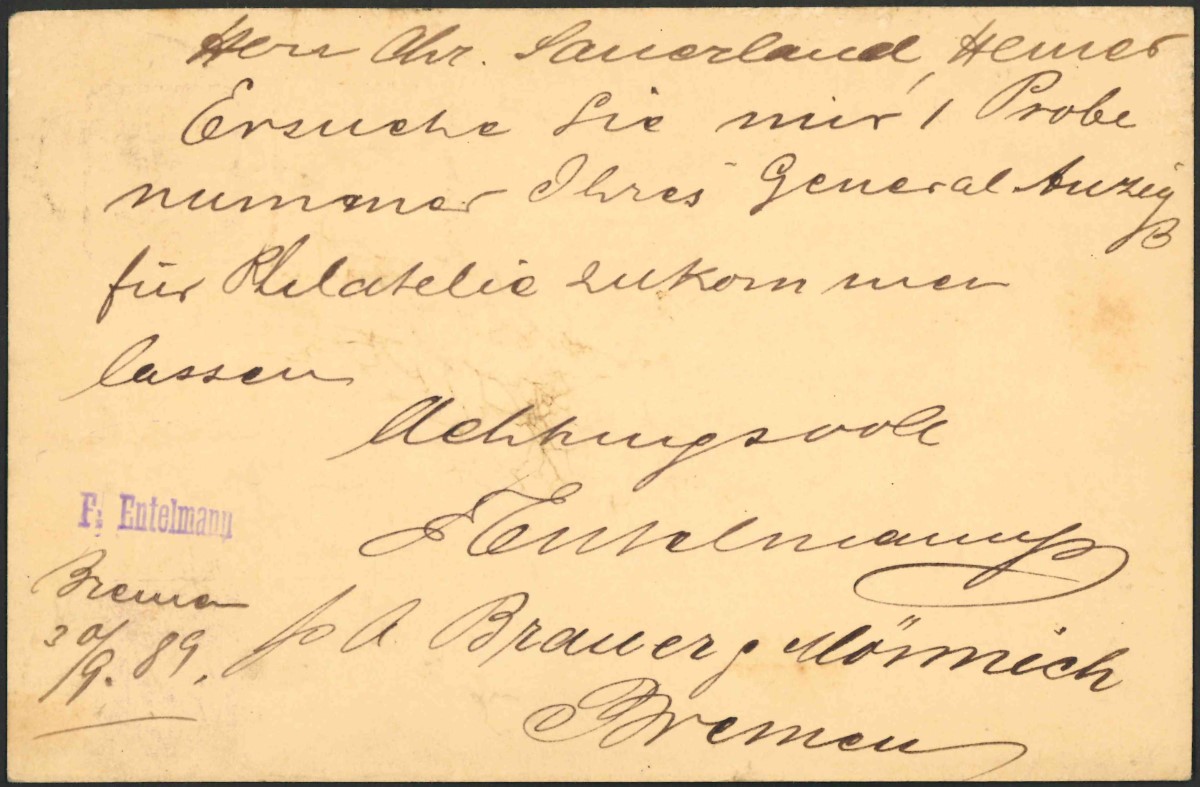 Herrn Chr. Sauerland, Hemer
Ersuche Sie mir 1 Probe
nummer Ihres General Anzeig
für Philatelie zukommen
lassen
Achtungsvoll
F. Entelmann
F Entelmann
Bremen
30/9. 89.
A. Brauer Mönnich
Bremen